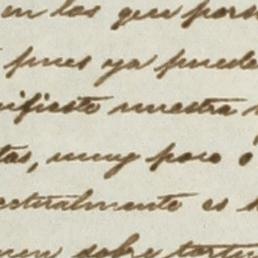 en los que por
pues ya puede
nifieste nuestra
tas, muy poco ó
ecturalmente es
men sobre tortu